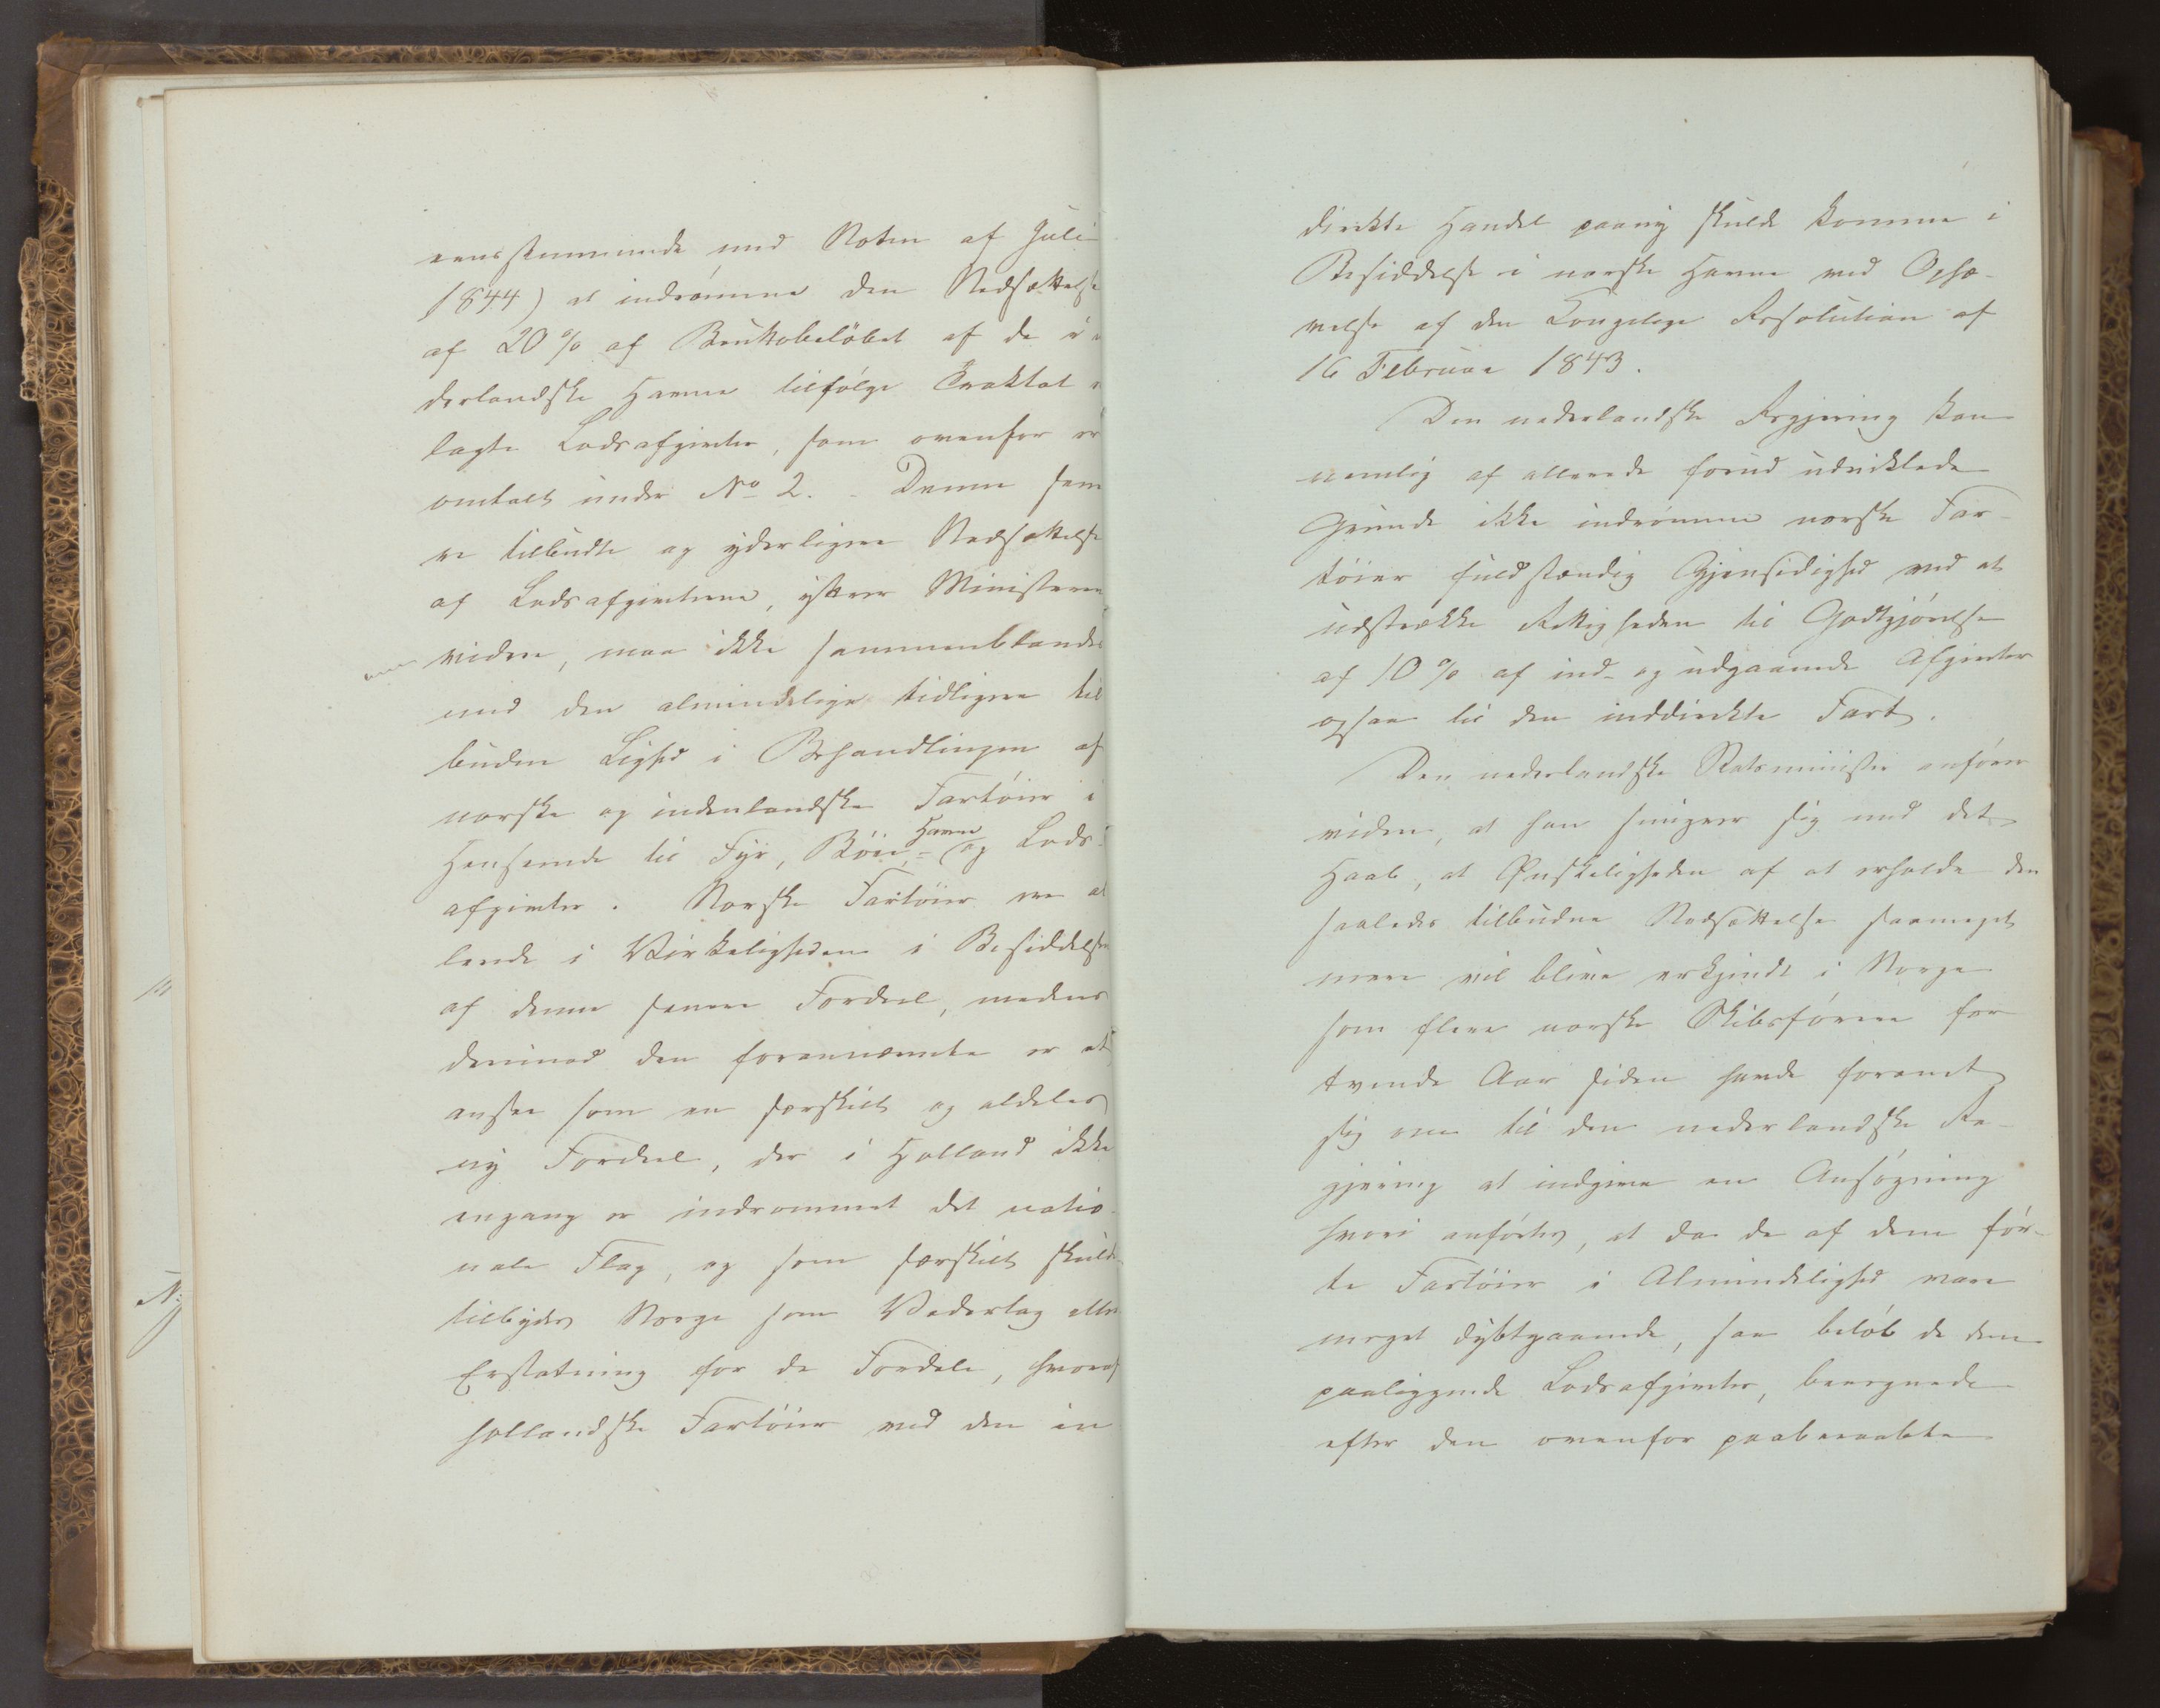 eensstemmende med Noten af Juli
1844) at indrømme den Nedsættelse
af 20 % af Bruttobeløbet af de i
derlandske Havne tilfølge Traktat
lagte Lodsafgivter, som ovenfor er
omtalt under No 2. - Denne sene
re tilbudte og yderligere Nedsættelse
af Lodsafgivterne, yttrer Ministeren
videre, maa ikke sammenblandes
med den almindelige tidligere til
budne Lighed i Behandlingen af
norske og indenlandske Fartøier i
Henseende til Fyr, Bøie, Havne- og Lods-
afgivter. Norske Fartøier ere al
lerede i Virkeligheden i Besiddelse
af denne senere Fordeel, medens
derimod den forannævnte er at
ansee som en særskilt og aldeles
ny Fordeel, der i Holland ikke
engang er indrømmet det natio-
nale Flag, og som særskilt skulde
tilbydes Norge som Vederlag eller
Erstatning for de Fordele, hvoraf
hollandske Fartøier ved den in
direkte Handel paany skulde komme i
Besiddelse i norske Havne ved Ophæ-
velse af den Kongelige Resolution af
16 Februar 1843.
Den nederlandske Regjering kan
nemlig af allerede forud udviklede
Grunde ikke indrømme norske Far-
tøier fuldstændig Gjensidighed ved at
udstrække Rettigheden til Godtgjørelse
af 10 % af ind- og udgaaende Afgivter
ogsaa til den inddirekte Fart.
Den nederlandske Statsminister anfører
videre, at han smigrer sig med det
Haab, at Ønskeligheden af at erholde den
saaledes tilbudne Nedsættelse saameget
mere vil blive erkjendt i Norge
som flere norske Skibsførere for
tvende Aar siden havde forenet
sig om til den nederlandske Re-
gjering at indgive en Ansøgning
hvori anførtes, at da de af dem før-
te Fartøier i Almindelighed vare
meget dybtgaaende, saa beløb de dem
paaliggende Lodsafgivter, beregnede
efter den ovenfor paaberaabte